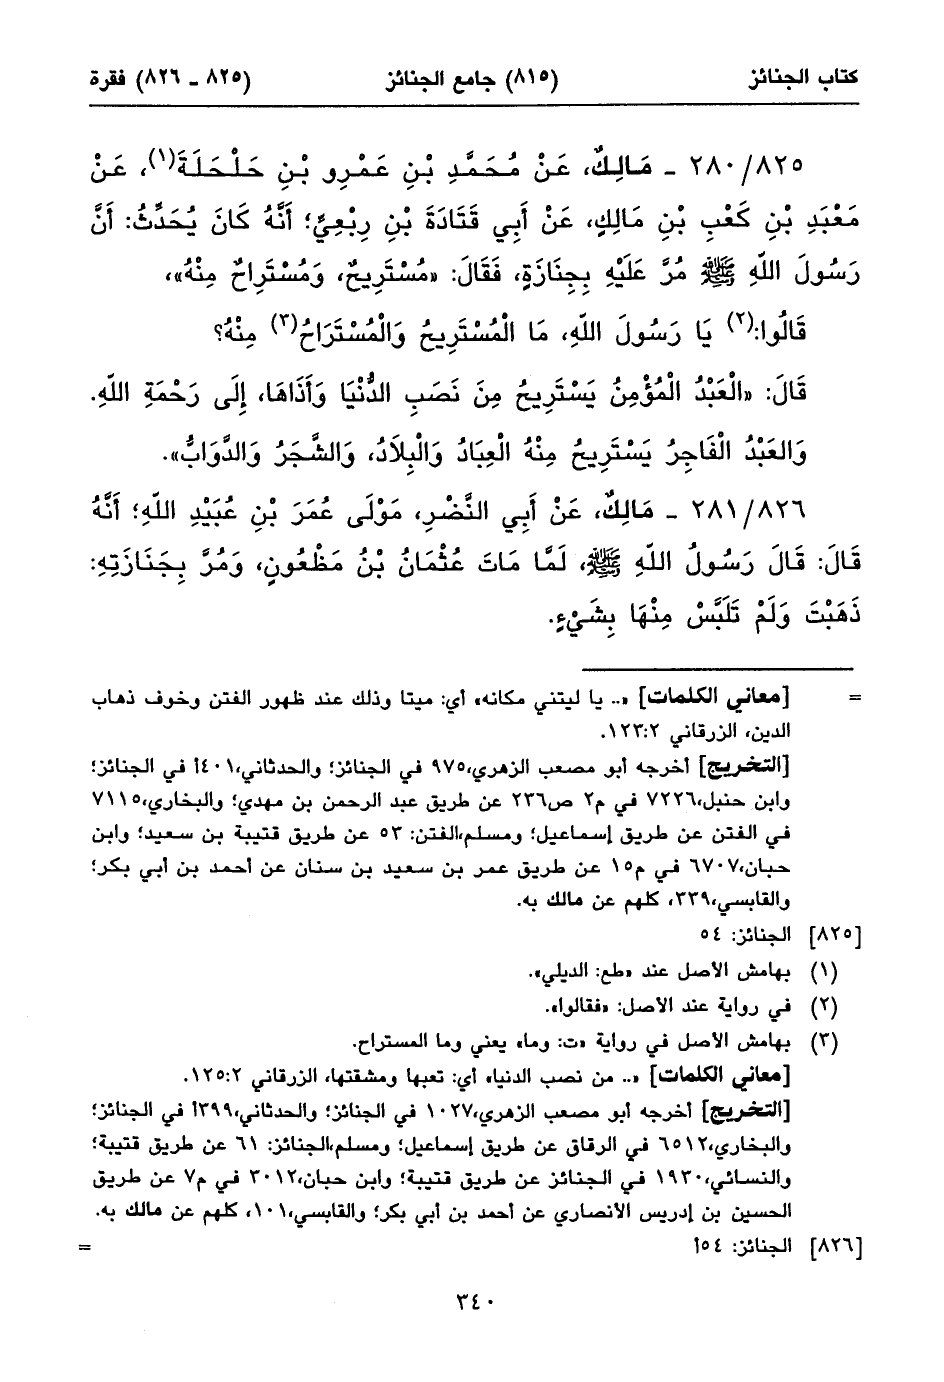 كتاب الجنائز (٨١٥) جامع الجنائز (٨٢٥ - ٨٢٦) فقرة
٢٨٠/٨٢٥ - مَالِكٌ، عَنْ مُحَمَّدِ بْنِ عَمْرِو بْنِ حَلْحَلَةَ(١)، عَنْ
مَعْبَدِ بْنِ كَعْبِ بْنِ مَالِكٍ، عَنْ أَبِي قَتَادَةَ بْنِ رِبْعِيٍّ؛ أَنَّهُ كَانَ يُحَدِّثُ: أَنَّ
رَسُولَ اللهِ ﷺ مُرَّ عَلَيْهِ بِجِنَازَةٍ، فَقَالَ: «مُسْتَرِيحٌ، وَمُسْتَرَاحٌ مِنْهُ»،
قَالُوا:(٢) يَا رَسُولَ اللهِ، مَا الْمُسْتَرِيحُ وَالْمُسْتَرَاحُ(٣) مِنْهُ؟
قَالَ: «الْعَبْدُ الْمُؤْمِنُ يَسْتَرِيحُ مِنَ نَصَبِ الدُّنْيَا وَأَذَاهَا، إِلَى رَحْمَةِ اللهِ.
وَالعَبْدُ الْفَاجِرُ يَسْتَرِيحُ مِنْهُ الْعِبَادُ وَالْبِلاَدُ، وَالشَّجَرُ وَالدَّوَابُّ».
٢٨١/٨٢٦ - مَالِكٌ، عَنْ أَبِي النَّضْرِ، مَوْلَى عُمَرَ بْنِ عُبَيْدِ اللهِ؛ أَنَّهُ
قَالَ: قَالَ رَسُولُ اللهِ ﷺ، لَمَّا مَاتَ عُثْمَانُ بْنُ مَظْعُونٍ، وَمُرَّ بِجَنَازَتِهِ:
ذَهَبْتَ وَلَمْ تَلَبَّسْ مِنْهَا بِشَيْءٍ.
= [معاني الكلمات] «.. يا ليتني مكانه» أي: ميتا وذلك عند ظهور الفتن وخوف ذهاب
الدين، الزرقاني ١٢٣:٢.
[التخريج] أخرجه أبو مصعب الزهري،٩٧٥ في الجنائز؛ والحدثاني،٤٠١أ في الجنائز؛
وابن حنبل،٧٢٢٦ في م٢ ص٢٣٦ عن طريق عبد الرحمن بن مهدي؛ والبخاري،٧١١٥
في الفتن عن طريق إسماعيل؛ ومسلم،الفتن: ٥٣ عن طريق قتيبة بن سعيد؛ وابن
حبان،٦٧٠٧ في م١٥ عن طريق عمر بن سعيد بن سنان عن أحمد بن أبي بكر؛
والقابسي،٣٣٩، كلهم عن مالك به.
[٨٢٥] الجنائز: ٥٤
(١) بهامش الأصل عند «طع: الديلي».
(٢) في رواية عند الأصل: «فقالوا».
(٣) بهامش الأصل في رواية «ت: وما» يعني وما المستراح.
[معاني الكلمات] «.. من نصب الدنيا» أي: تعبها ومشقتها، الزرقاني ١٢٥:٢.
[التخريج] أخرجه أبو مصعب الزهري،١٠٢٧ في الجنائز؛ والحدثاني،٣٩٩أ في الجنائز؛
والبخاري،٦٥١٢ في الرقاق عن طريق إسماعيل؛ ومسلم،الجنائز: ٦١ عن طريق قتيبة؛
والنسائي،١٩٣٠ في الجنائز عن طريق قتيبة؛ وابن حبان،٣٠١٢ في م٧ عن طريق
الحسين بن إدريس الأنصاري عن أحمد بن أبي بكر؛ والقابسي،١٠١، كلهم عن مالك به.
[٨٢٦] الجنائز: ٥٤أ =
٣٤٠